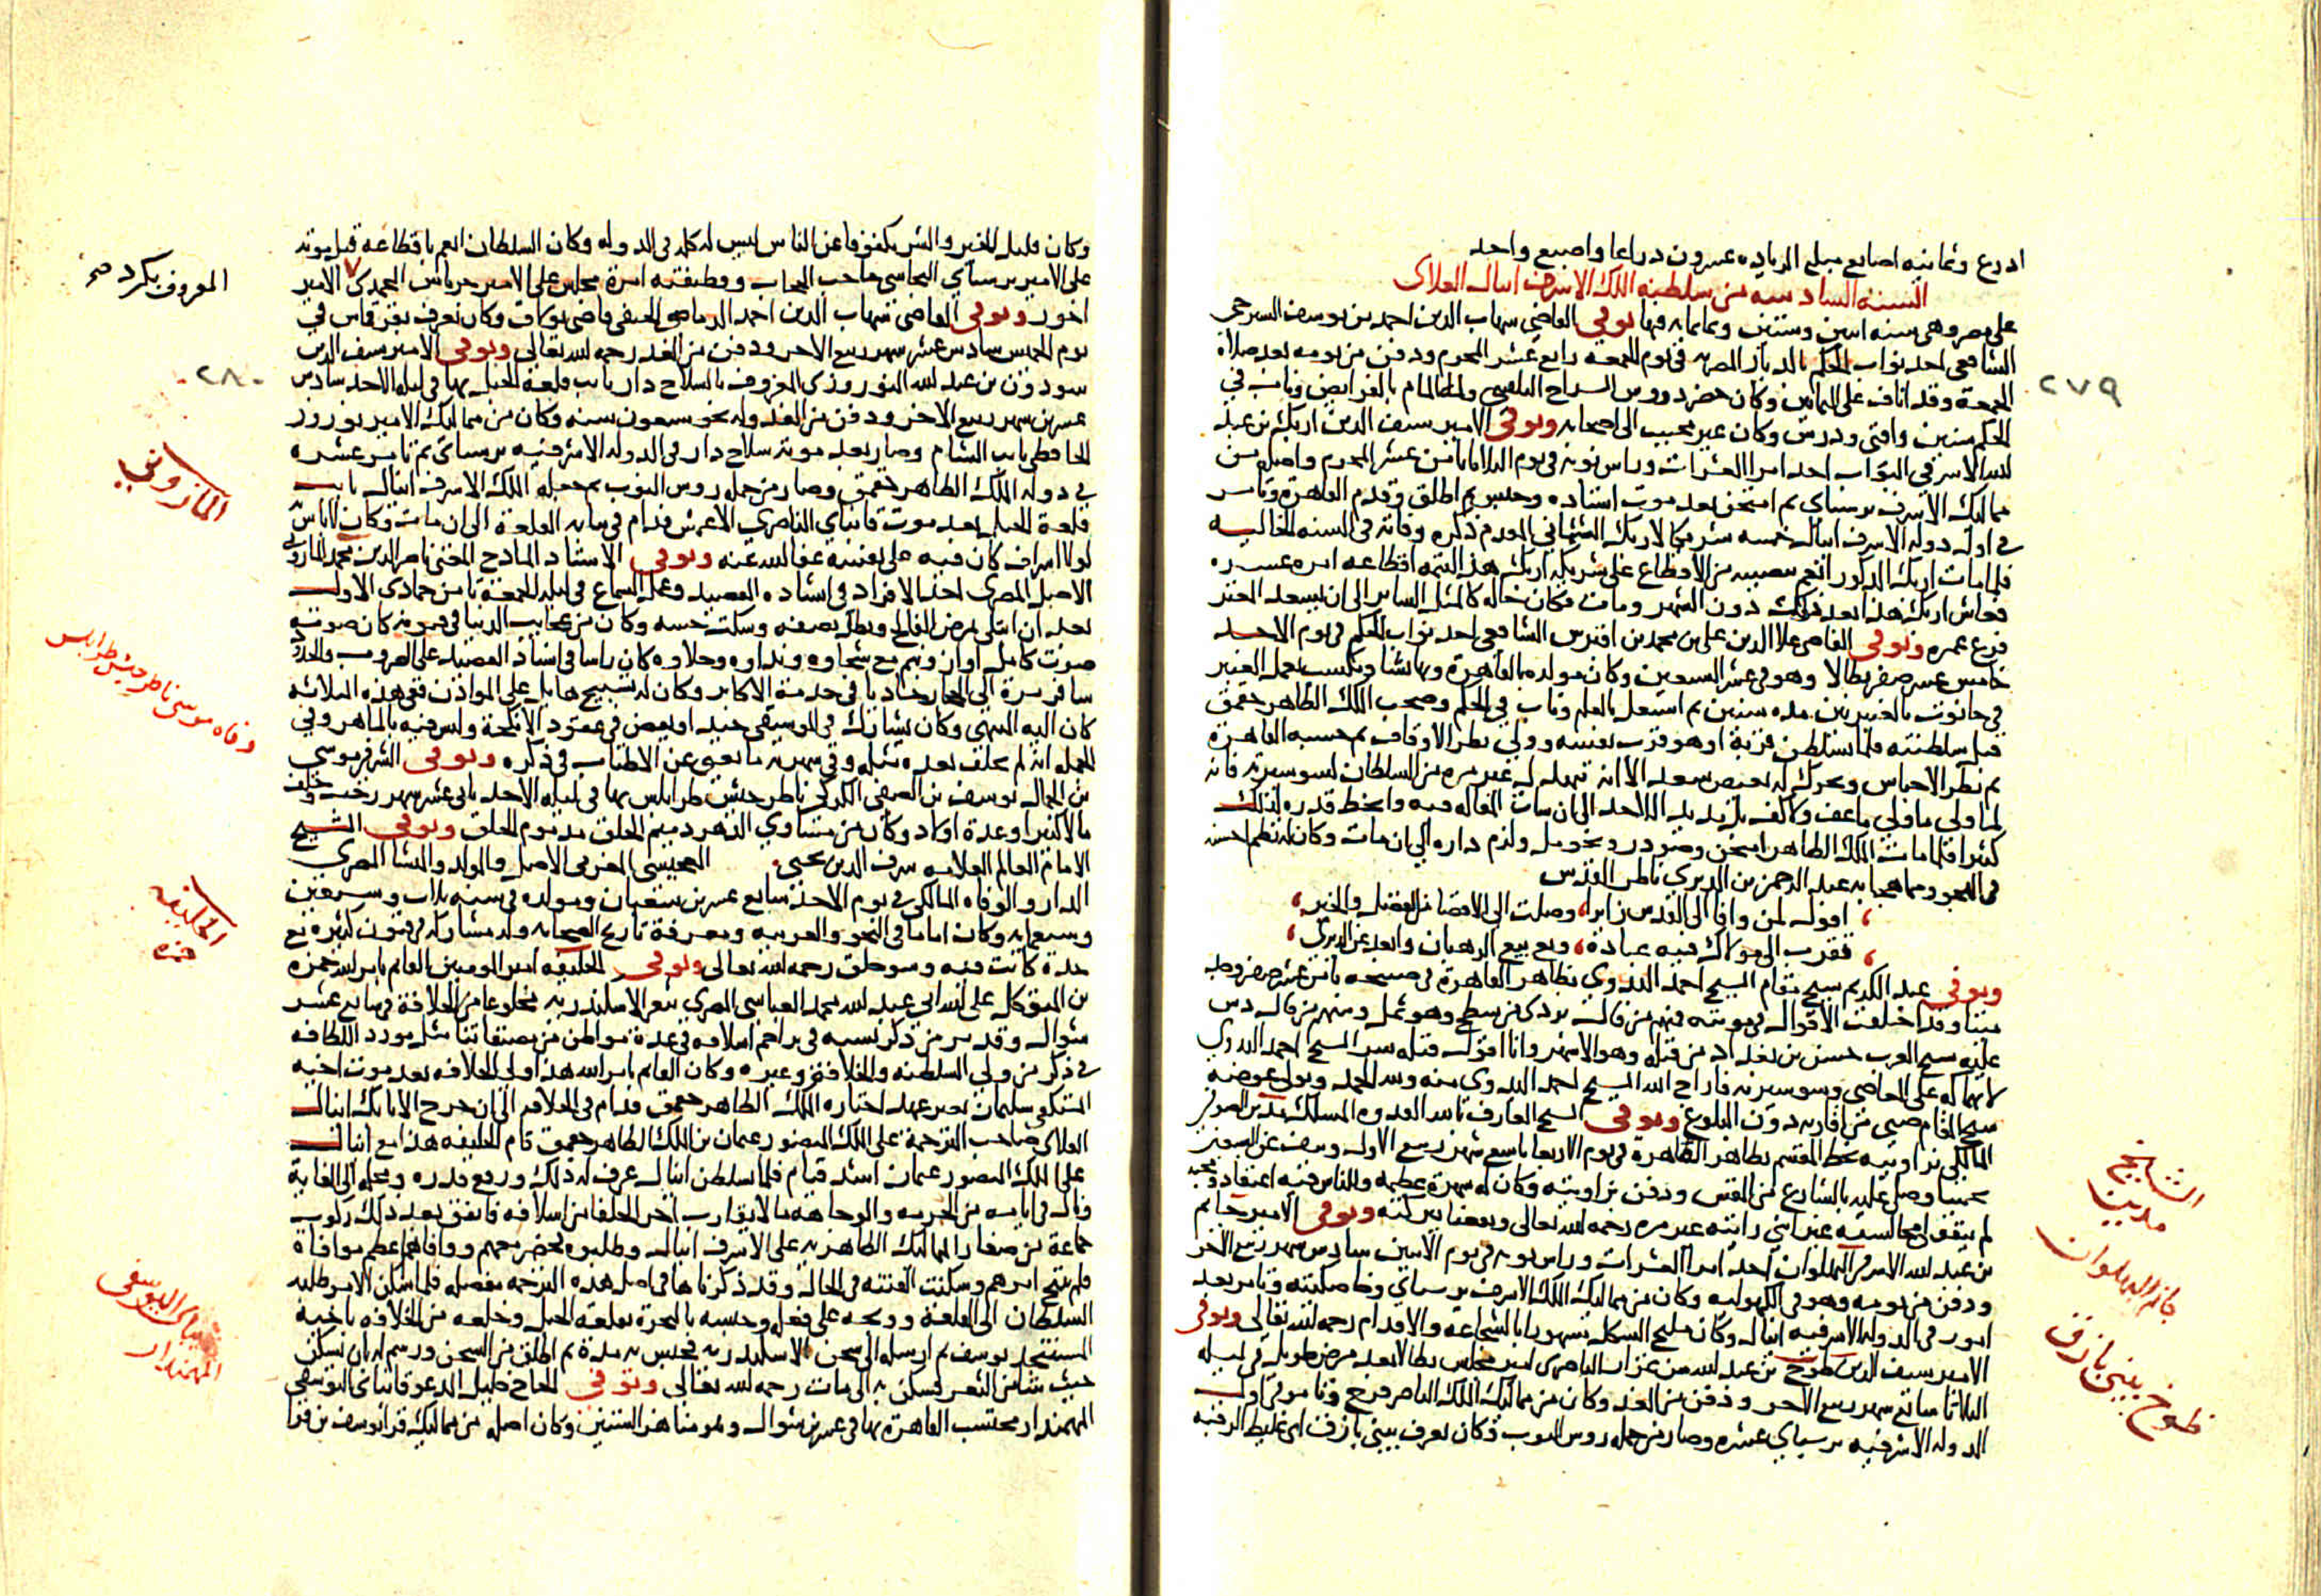 ادرع وثمانيه اصابع مبلغ الزياده عشرون دراعا واصبع واحد
السنة السادسه من سلطنه الملك الاشرف اينال العلاى
على مصر وهى سنه اثنين وستين وثمانمائه فيها توفي القاضي شهاب الدين احمد بن يوسف الشيرجى
الشافعى احد نواب الحكم بالديار المصريه في يوم الجمعه رابع عشر المحرم ودفن من يومه بعد صلاة
الجمعة وقد اناف على الثمانين وكان حضر دروس السراج البلقينى وله المام بالفرايض وناب في
الحكم سنين وافتى ودرس وكان غير محبب الى اصحابه وتوفى الامير سيف الدين ازبك بن عبد
الله الاشرفى البواب احد امرا العشرات وراس نوبه في يوم الثلاثا ثامن عشر المحرم واصله من
مماليك الاشرف برسباي ثم امتحن بعد موت استاده وحبس ثم اطلق وقدم القاهرة وتامر
في اول دوله الاشرف اينال خمسه شريكا لازبك الششمانى المقدم ذكره وفاته في السنه الخاليه
فلما مات ازبك المذكور انعم بنصيبه من الاقطاع على شريكه ازبك هذا لتتمه اقطاعه امره عشره
فعاش ازبك هذا بعد ذلك دون الشهر ومات فكان حاله كالمثل الساير الى ان يسعد المعتر
فرغ عمره وتوفى القاضى علا الدين على بن محمد بن اقبرس الشافعى احد نواب الحكم في يوم الاحد
خامس عشر صفر بطالا وهو في عشر السبعين وكان مولده بالقاهرة وبها نشا وتكسب بعمل العنبر
في حانوت بالعنبريين مده سنين ثم اشتغل بالعلم وناب في الحكم وصحب الملك الظاهر جقمق
قبل سلطنته فلما تسلطن قربه او هو قرب نفسه وولي نظر الاوقاف ثم حسبه القاهرة
ثم نظر الاحباس وتحرك له بعض سعد الا انه تبهدل له غير مره من السلطان لسو سيرته فانه
لما ولى ما ولى ما عف ولا كف بل مد يد الاخذ الى ان ساءت القاله فيه وانحط قدره لذلك
كثيرا فلما مات الملك الظاهر امتحن وصودر ونحو مل ولزم داره الى ان مات وكان له نظم احسنه
في الهجو ومما هجا به عبد الرحمن بن الديري ناظر القدس
، اقول لمن وافا الى القدس زايرا، وصلت الى الاقصا من الفضل والخير،
، تقرب الى مولاك فيه عبادة، ومع بيع الرهبان وابعد عن الديري،
وتوفى عبد الكريم شيخ مقام الشيخ احمد البدوي بظاهر القاهرة في صبيحه ثامن عشر صفر وجد
ميتا وقد اختلفت الاقوال في موتته فمنهم من قال تردى من سطح وهو ثمل ومنهم من قال دس
عليه شيخ العرب حسن بن بغداد من قتله وهو الاشهر وانا اقول قتله سر الشيخ احمد البدوي
لانهماكه على المعاصى وسو سيرته فاراح الله الشيخ احمد البدوى منه ولله الحمد وتولى عوضه
شيخ المقام صبى من اقاربه دون البلوغ وتوفى الشيخ العارف بالله القدوه المسلك مدين الصوفى
المالكى بزاويته بخط المقسم بظاهر القاهرة في يوم الاربعا تاسع شهر ربيع الاول وسنه نيف عن السبعين
تخمينا وصلى عليه بالشارع من المقس ودفن بزاويته وكان له شهرة عظيمه وللناس فيه اعتقاد ومحبه
لم يتفق لى مجالسته غير اننى رايته غير مره رحمه الله تعالى ونفعنا ببركته وتوفى الامير جانم
بن عبد الله الاشرفى البهلوان احد امرا العشرات وراس نوبه في يوم الاثنين سادس شهر ربيع الاخر
ودفن من يومه وهو في الكهوليه وكان من مماليك الملك الاشرف برسباي وخاصكيته وتامر بعد
امور في الدوله الاشرفيه اينال وكان مليح الشكل مشهورا بالشجاعه والاقدام رحمه الله تعالى وتوفى
الامير سيف الدين طوخ بن عبد الله من تمراز الناصرى امير مجلس بطالا بعد مرض طويل في ليله
الثلاثا سابع شهر ربيع الاخر ودفن من الغد وكان من مماليك الملك الناصر فرج وتامر في اول
الدوله الاشرفيه برسباي عشره وصار من جمله روس النوب وكان يعرف بينى بازق اى غليظ الرقبه
٢٧٩
الشيخ
مدين
جانم البهلوان
طوخ بينى بازق
وكان قليل الخير والشر مكفوفا عن الناس ليس له كلمه في الدوله وكان السلطان انعم باقطاعه قبل موته
على الامير برسباي البجاسى حاجب الحجاب ووظيفته امرة مجلس على الامير جرباش المحمدى الامير
اخور وتوفى القاضى شهاب الدين احمد الدماصى الحنفى قاضى بولاق وكان يعرف بقرقماس في
يوم الخميس سادس عشر شهر ربيع الاخر ودفن من الغد رحمه الله تعالى وتوفى الامير سيف الدين
سودون بن عبد الله النوروزى المعروف بالسلاح دار نايب قلعة الجبل بها في ليله الاحد سادس
عشرين شهر ربيع الاخر ودفن من الغد وله نحو سبعون سنه وكان من مماليك الامير نوروز
الحافظى نايب الشام وصار بعد موته سلاح دار في الدوله الاشرفيه برسباى ثم تامر عشره
في دوله الملك الظاهر جقمق وصار من جمله روس النوب ثم جعله الملك الاشرف اينال نايب
قلعة الجبل بعد موت قانباي الناصري الاعمش فدام في نيابه القلعة الى ان مات وكان لا باس به
لولا اسراف كان فيه على نفسه عفا الله عنه وتوفى الاستاد المادح المغنى ناصر الدين محمد المازونى
الاصل المصرى احد الافراد في انشاده القصيد وعمل السماع في ليله الجمعة ثامن جمادى الاول
بعد ان ابتلى بمرض الفالج وبطل نصفه وسكت حسه وكان من عجايب الدنيا في فنونه كان صوته
صوت كامل اوان ونيم مع شجاوه ونداوه وحلاوه كان راسا في انشاد القصيد على الضروب والحدود
سافر مرة الى الحجاز حاديا في خدمة الاكابر وكان له تسبيح هايل على المواذن ففى هذه الثلاثه
كان اليه المنتهى وكان يشارك في الموسيقى جيد او يبعض في عقود الانكحة وليس فيه بالماهر وفي
الجمله انه لم يخلف بعده مثله وفى شهرته ما يغنى عن الاطناب في ذكره وتوفى الشرفى موسى
بن الجمالى يوسف بن الصفى الكركى ناظر جيش طرابلس بها في ليله الاحد ثانى عشر شهر رجب وخلف
مالا كثيرا وعدة اولاد وكان من مساوي الدهر دميم الخلق مذموم الخلق وتوفى الشيخ
الامام العالم العلامه شرف الدين يحيى العجيسى المغربى الاصل والمولد والمنشا المصري
الدار والوفاه المالكى في يوم الاحد سابع عشرين شعبان ومولده في سنه ثلاث وسبعين
وسبعمائه وكان اماما في النحو والعربيه ومعرفة تاريخ الصحابه وله مشاركه في فنون كثيره مع
حدة كانت فيه وسو خلق رحمه الله تعالى وتوفى الخليفه امير المومنين القايم بامر الله حمزه
بن المتوكل على الله ابى عبد الله محمد العباسى المصرى بثغر الاسكندريه مخلوعا من الخلافة في سابع عشر
شوال وقد مر من ذكر نسبه في تراجم اسلافه في عدة مواطن من مصنفاتنا مثل مورد اللطافه
في ذكر من ولى السلطنه والخلافه وغيره وكان القايم بامر الله هذا ولى الخلافه بعد موت اخيه
المستكفى سليمان بغير عهد اختاره الملك الظاهر جقمق فدام في الخلافه الى ان خرج الاتابك اينال
العلاى صاحب الترجمة على الملك المنصور عثمان بن الملك الظاهر جقمق قام الخليفه هذا مع اينال
على الملك المنصور عثمان اشد قيام فلما تسلطن اينال عرف له ذلك ورفع قدره ومحله الى الغاية
ونال في ايامه من الحرمه والوجاهه ما لا يقارب احد الخلفا من اسلافه فاتفق بعد ذلك ركوب
جماعة من صغار المماليك الظاهريه على الاشرف اينال وطلبوه فحضر معهم ووافاهم اعظم موافاة
فلم ينتج امرهم وسكنت الفتنه في الحال وقد ذكرناها في اصل هذه الترجمه مفصله فلما سكن الامر طلبه
السلطان الى القلعة ووبخه على فعله وحبسه بالبحرة بقلعة الجبل وخلعه من الخلافه باخيه
المستنجد يوسف ثم ارسله الى سجن الاسكندريه فحبس به مدة ثم اطلق من السجن ورسم له ان يسكن
حيث شا من الثغر فسكن به الى مات رحمه الله تعالى وتوفى الحاج خليل المدعو قانباى اليوسفى
المهمندار محتسب القاهرة بها في عشرين شوال وهو مناهز الستين وكان اصله من مماليك قرا يوسف بن قرا
المعروف بكرد صح
٢٨٠
المازونى
وفاه موسى ناظر جيش طرابلس
الخليفه
حمزه
قانباى اليوسفى
المهمندار